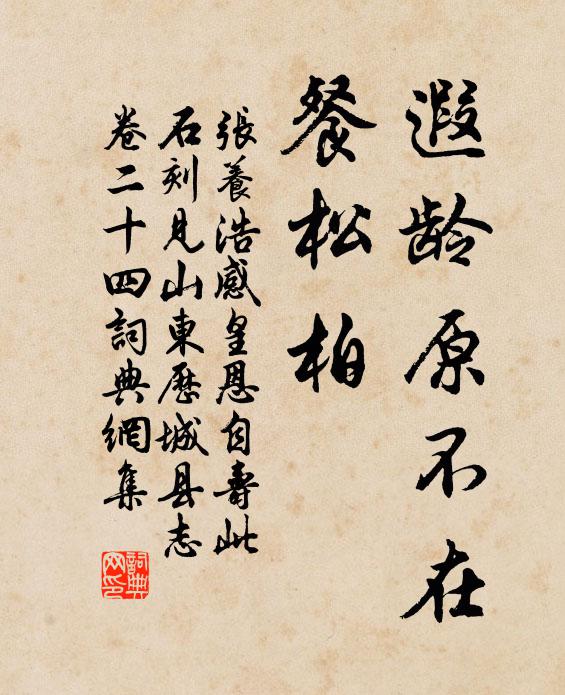 遐龄原不在
餐松柏
張養浩感皇恩自壽此
石刻見山東歷城县志
卷二十四詞典網集
詞典网印